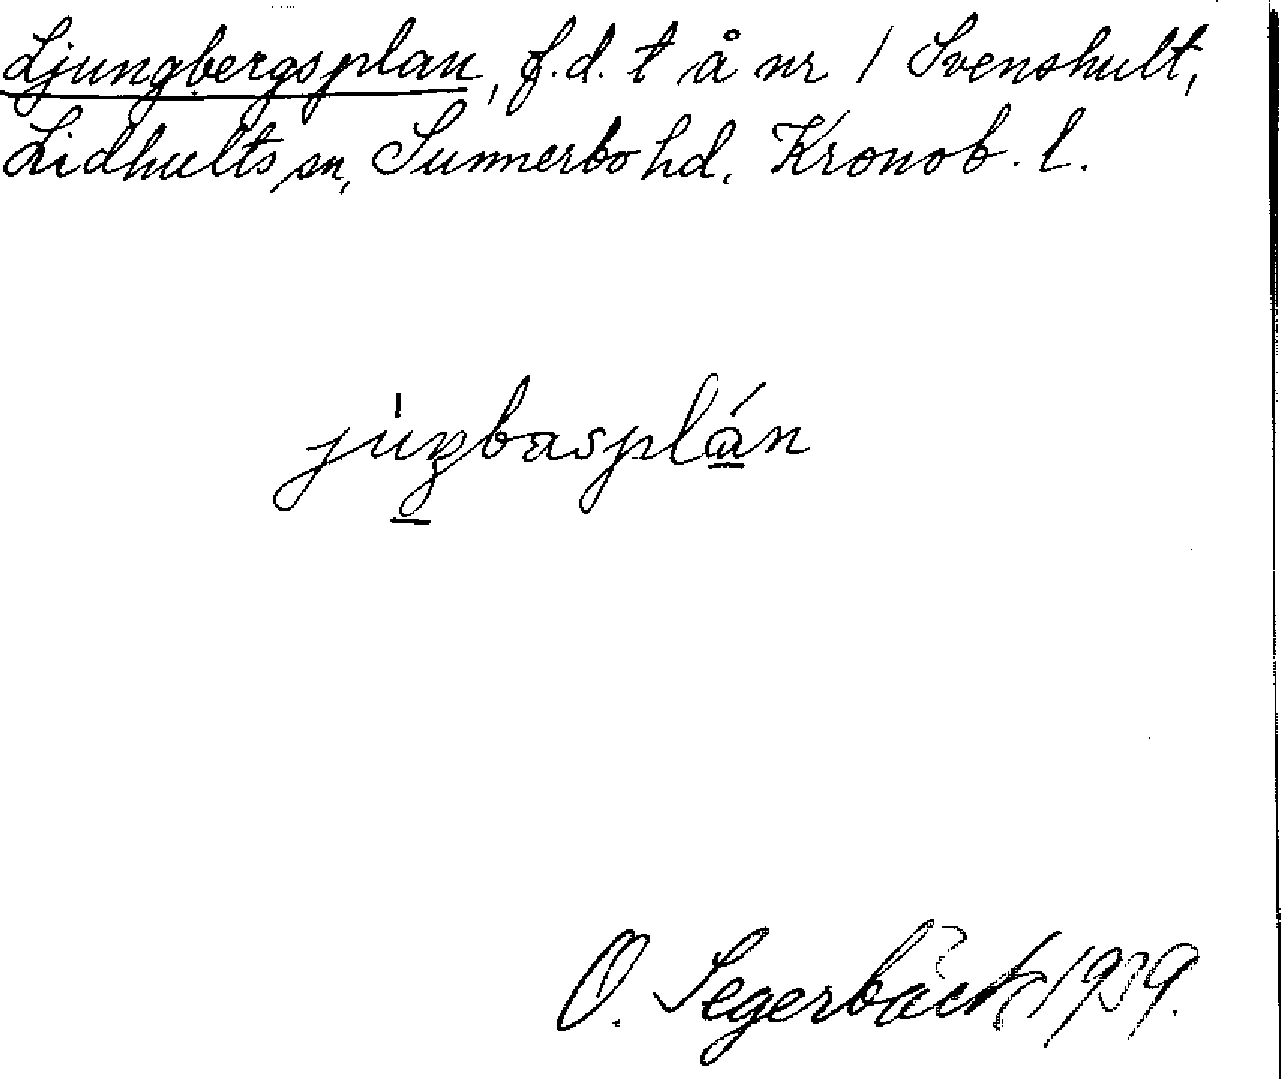 Ljungbergsplan, f.d. t å nr 1 Svenshult,
Lidhults sn, Sunnerbo hd. Kronob. l.
júŋbasplán
O. Segerbäck 1939.